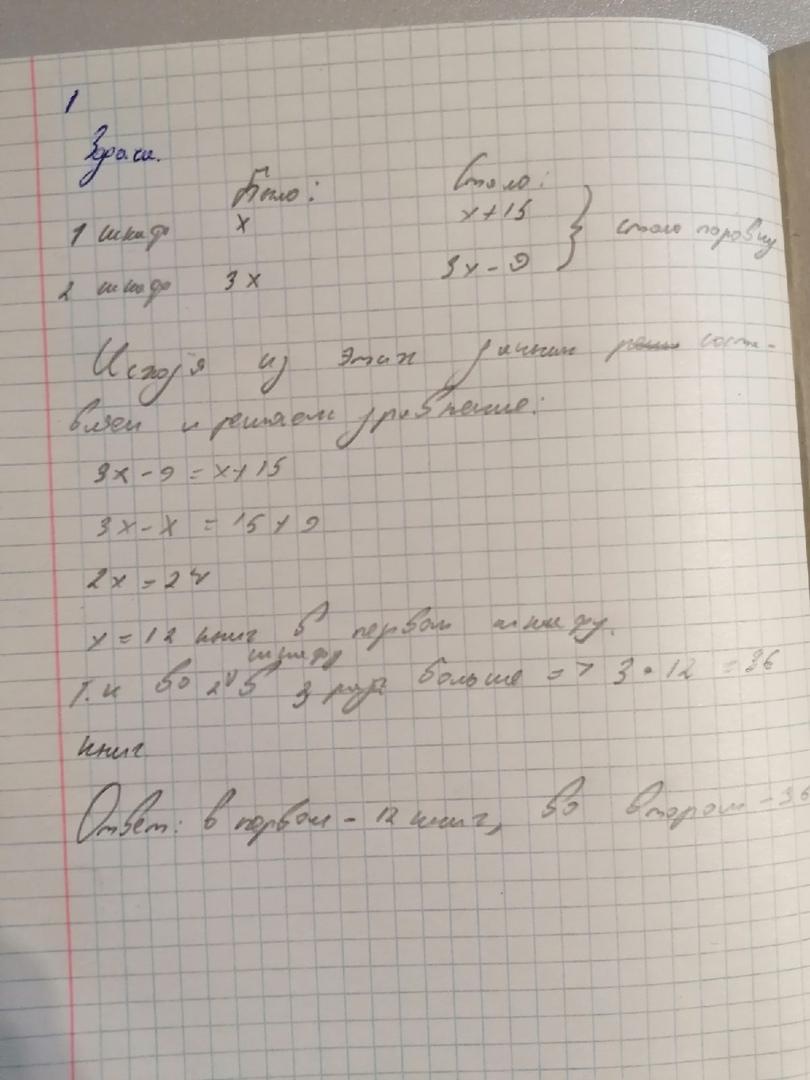 1
Задача.
Было: Стало:
1 шкаф x x+15 } стало поровну
2 шкаф 3x 3x-9
Исходя из этих данных реши соста-
вляем и решаем уравнение:
3x-9=x+15
3x-x=15+9
2x=24
x=12 книг в первом шкафу.
Т.к во 2 шкафу в 3 раза больше => 3•12=36
книг
Ответ: в первом - 12 книг, во втором - 36